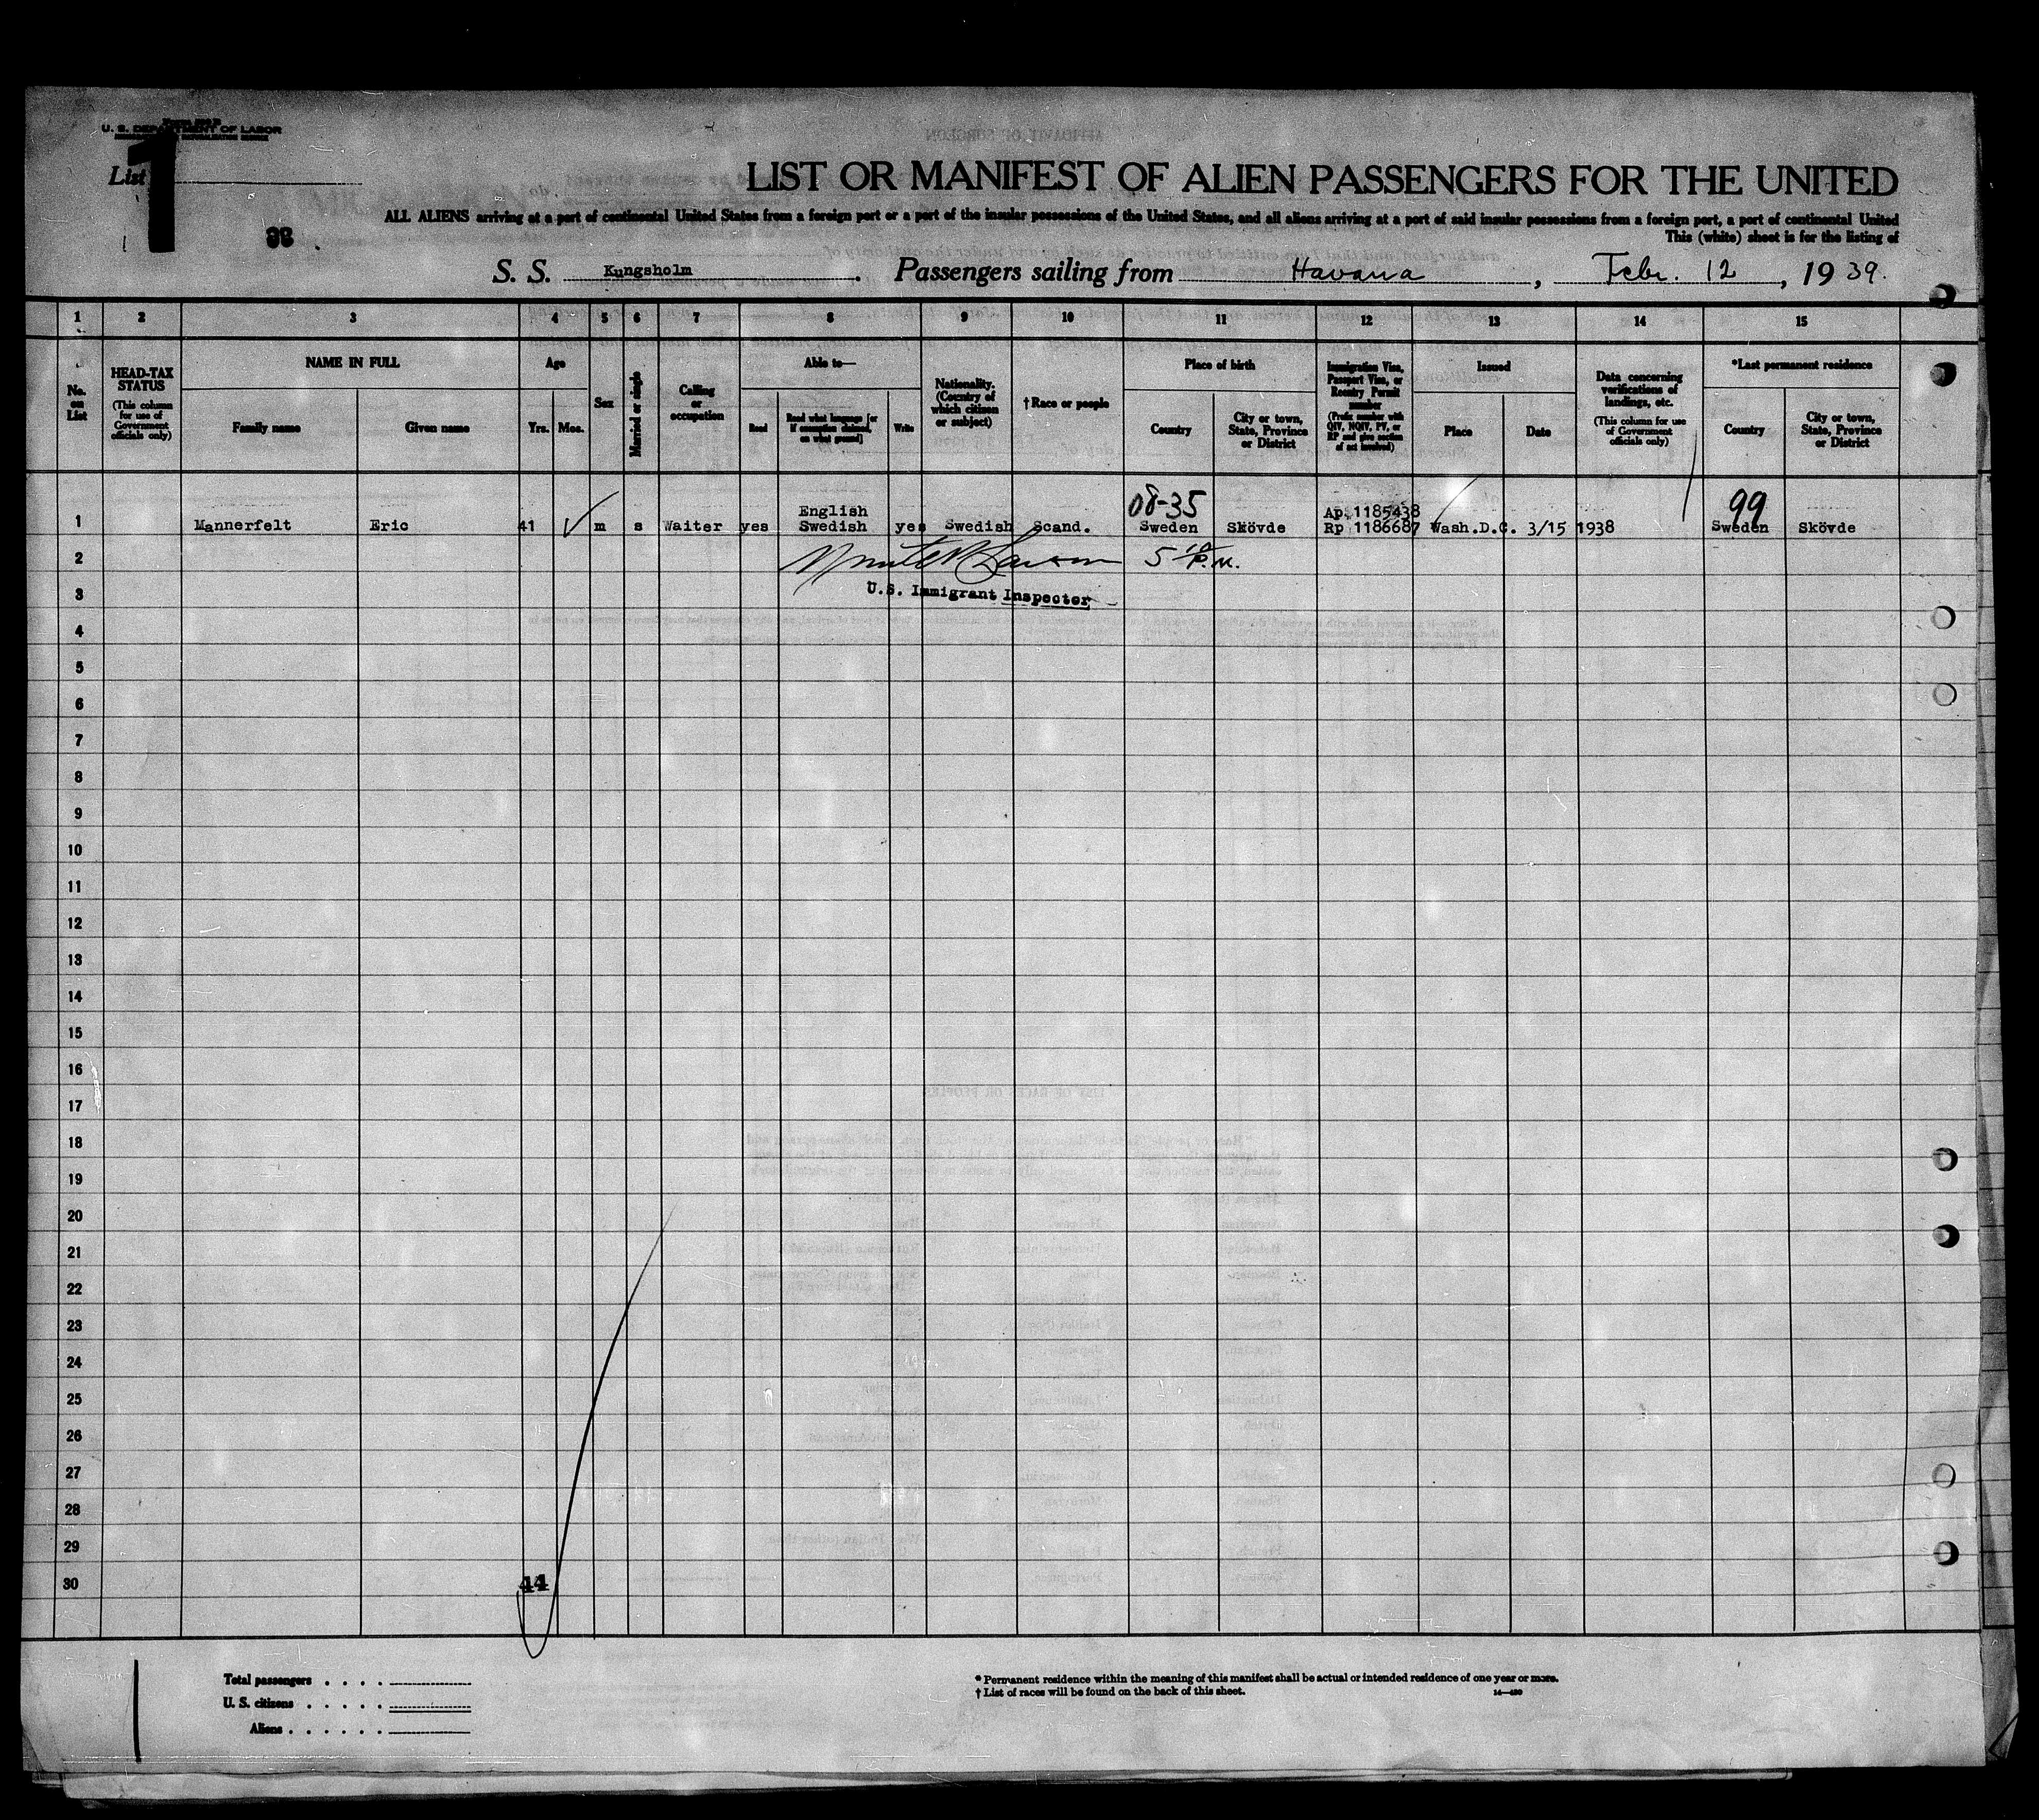 U. S. DEPARTMENT OF LABOR
List 1
38
LIST OR MANIFEST OF ALIEN PASSENGERS FOR THE UNITED
ALL ALIENS arriving at a port of continental United States from a foreign port or a port of the insular possessions of the United States, and all aliens arriving at a port of said insular possessions from a foreign port, a port of continental United
This (white) sheet is for the listing of
S. S. Kungsholm. Passengers sailing from Havana, Febr. 12, 1939.
1 2 3 4 5 6 7 8 9 10 11 12 13 14 15
No. on List
HEAD-TAX STATUS (This column for use of Government officials only)
NAME IN FULL
Family name
Given name
Age
Yrs. Mos.
Sex
Married or single
Calling or occupation
Able to—
Read
Read what language [or if exemption claimed, on what ground]
Write
Nationality. (Country of which citizen or subject)
†Race or people
Place of birth
Country
City or town, State, Province or District
Immigration Visa, Passport Visa, or Reentry Permit number (Prefix number with QIV, NQIV, PV, or RP and give section of act involved)
Issued
Place
Date
Data concerning verifications of landings, etc. (This column for use of Government officials only)
*Last permanent residence
Country
City or town, State, Province or District
08-35 99
English Ap. 1185438
1 Mannerfelt Eric 41 m s Waiter yes Swedish yes Swedish Scand. Sweden Skövde Rp 1186687 Wash.D.C. 3/15 1938 Sweden Skövde
2 5 10 P.M.
3 U.S. Immigrant Inspector
4
5
6
7
8
9
10
11
12
13
14
15
16
17
18
19
20
21
22
23
24
25
26
27
28
29
30 44
Total passengers . . . .
U. S. citizens . . . . .
Aliens . . . . . .
* Permanent residence within the meaning of this manifest shall be actual or intended residence of one year or more.
† List of races will be found on the back of this sheet.